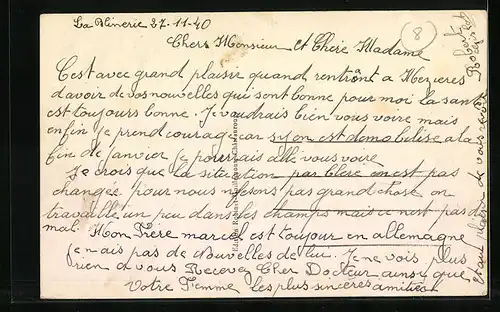 La Minerie 27-11-40
8
Chers Monsieur et Chère Madame
C'est avec grand plaisir quand rentrônt a Mezieres
d'avoir de vos nouvelles qui sont bonne pour moi la santé
est toujours bonne. Je voudrais bien vous voire mais
enfin je prend courage car si l'on est demobilise a la
fin de janvier je pourrais allé vous voire
Je crois que la situation par Clere en est pas
changée pour nous nfesons pas grand chose on
travaille un peu dans les champs mais ce n'est pas de
mal. Mon Frère marcel est toujour en allemagne
je n'ais pas de Nouvelles de lui. Je ne vois plus
rien a vous Recevez Cher Docteur ainsy que
Votre Femme les plus sincères amitiés
Robert
de vous revoir